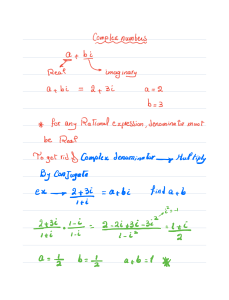 Complex numbers
a + bi
Real imaginary
a + bi = 2 + 3i a = 2
b = 3
* for any Rational expression, denominator must
be Real
To get rid of Complex denominator → Multiply
By Conjugate
ex → 2+3i / 1+i = a+bi find a+b
2+3i / 1+i · 1-i / 1-i = 2-2i+3i-3i² / 1-i² = i²=-1
a = 1/2 b = 1/2 a+b = 1